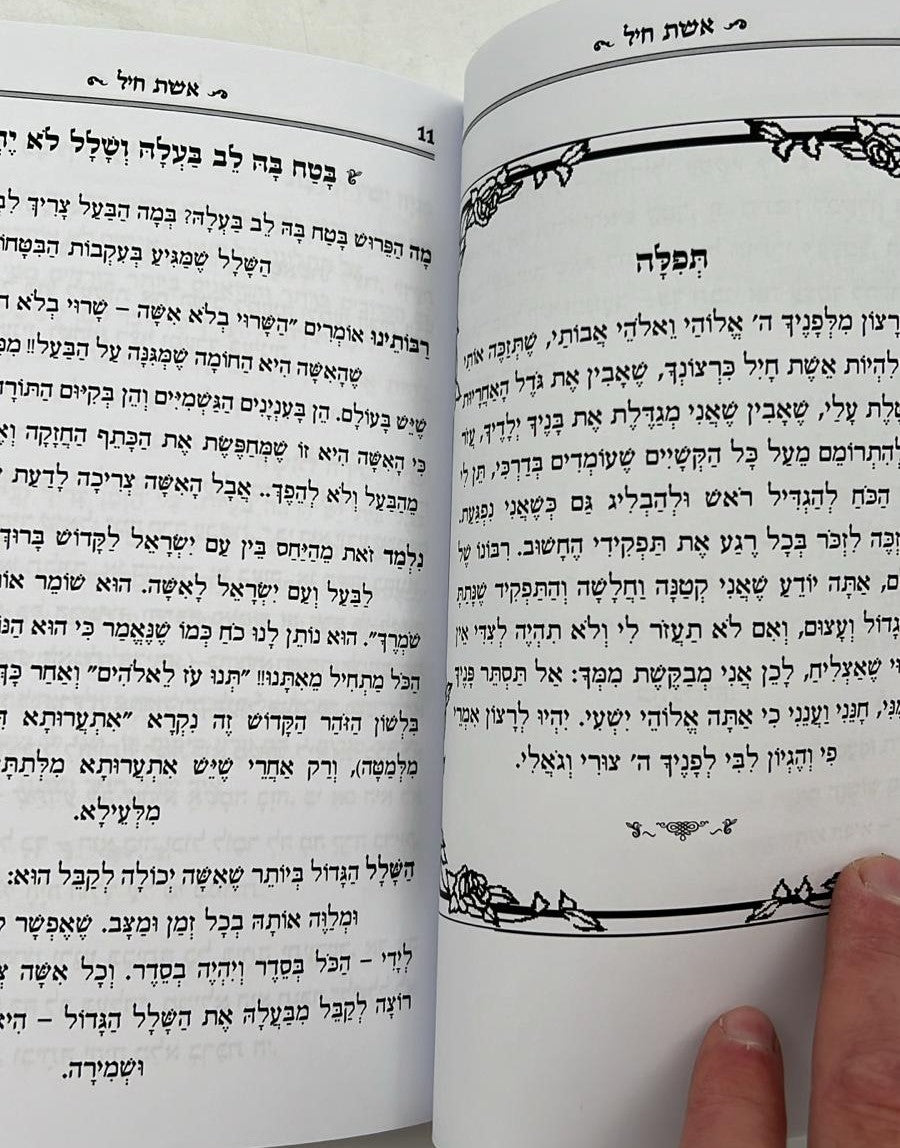 אשת חיל
תְּפִלָּה
רָצוֹן מִלְּפָנֶיךָ ה׳ אֱלוֹהַי וֵאלֹהֵי אֲבוֹתַי, שֶׁתְּזַכֶּה אוֹתִי
לִהְיוֹת אֵשֶׁת חַיִל כִּרְצוֹנְךָ, שֶׁאָבִין אֶת גֹּדֶל הָאַחֲרָיוּת
עָלַי, שֶׁאָבִין שֶׁאֲנִי מְגַדֶּלֶת אֶת בָּנֶיךָ יְלָדֶיךָ, עֲזוֹר
לְהִתְרוֹמֵם מֵעַל כָּל הַקְּשָׁיִים שֶׁעוֹמְדִים בְּדַרְכִּי, תֵּן לִי
הַכֹּחַ לְהַגְדִּיל רֹאשׁ וּלְהַבְלִיג גַּם כְּשֶׁאֲנִי נִפְגַּעַת.
לִזְכֹּר בְּכָל רֶגַע אֶת תַּפְקִידִי הֶחָשׁוּב. רִבּוֹנוֹ שֶׁל
אַתָּה יוֹדֵעַ שֶׁאֲנִי קְטַנָּה וַחֲלָשָׁה וְהַתַּפְקִיד שֶׁנָּתַתָּ
גָּדוֹל וְעָצוּם, וְאִם לֹא תַּעֲזֹר לִי וְלֹא תִּהְיֶה לְצִדִּי אֵין
שֶׁאַצְלִיחַ, לָכֵן אֲנִי מְבַקֶּשֶׁת מִמְּךָ: אַל תַּסְתֵּר פָּנֶיךָ
חָנֵּנִי וַעֲנֵנִי כִּי אַתָּה אֱלוֹהֵי יִשְׁעִי. יִהְיוּ לְרָצוֹן אִמְרֵי
פִי וְהֶגְיוֹן לִבִּי לְפָנֶיךָ ה׳ צוּרִי וְגֹאֲלִי.
אשת חיל
11
בָּטַח בָּהּ לֵב בַּעְלָהּ וְשָׁלָל לֹא
מָה הַפֵּרוּשׁ בָּטַח בָּהּ לֵב בַּעְלָהּ? בְּמָה הַבַּעַל צָרִיךְ
הַשָּׁלָל שֶׁמַּגִּיעַ בְּעִקְבוֹת
רַבּוֹתֵינוּ אוֹמְרִים ״הַשָּׁרוּי בְּלֹא אִשָּׁה – שָׁרוּי בְּלֹא
שֶׁהָאִשָּׁה הִיא הַחוֹמָה שֶׁמְּגִנָּה עַל הַבַּעַל!!
שֶׁיֵּשׁ בָּעוֹלָם. הֵן בָּעִנְיָנִים הַגַּשְׁמִיִּים וְהֵן בְּקִיּוּם
כִּי הָאִשָּׁה הִיא זוֹ שֶׁמְּחַפֶּשֶׂת אֶת הַכָּתֵף הַחֲזָקָה
מֵהַבַּעַל וְלֹא לְהֵפֶךְ.. אֲבָל הָאִשָּׁה צְרִיכָה לָדַעַת
נִלְמַד זֹאת מֵהַיַּחַס בֵּין עַם יִשְׂרָאֵל לַקָּדוֹשׁ בָּרוּךְ
לַבַּעַל וְעַם יִשְׂרָאֵל לָאִשָּׁה. הוּא שׁוֹמֵר
שֹׁמְרֶךָ״. הוּא נוֹתֵן לָנוּ כֹּחַ כְּמוֹ שֶׁנֶּאֱמַר כִּי הוּא
הַכֹּל מַתְחִיל מֵאִתָּנוּ!! ״תְּנוּ עֹז לֵאלֹהִים״ וְאַחַר כָּךְ
בִּלְשׁוֹן הַזֹּהַר הַקָּדוֹשׁ זֶה נִקְרָא ״אִתְעֲרוּתָא
מִלְּמַטָּה), וְרַק אַחֲרֵי שֶׁיֵּשׁ אִתְעֲרוּתָא
מִלְּעֵילָא.
הַשָּׁלָל הַגָּדוֹל בְּיוֹתֵר שֶׁאִשָּׁה יְכוֹלָה לְקַבֵּל הוּא:
וּמְלַוֶּה אוֹתָהּ בְּכָל זְמַן וּמַצָּב. שֶׁאֶפְשָׁר
לְיָדִי – הַכֹּל בְּסֵדֶר וְיִהְיֶה בְּסֵדֶר. וְכָל אִשָּׁה
רוֹצָה לְקַבֵּל מִבַּעֲלָהּ אֶת הַשָּׁלָל הַגָּדוֹל –
וּשְׁמִירָה.